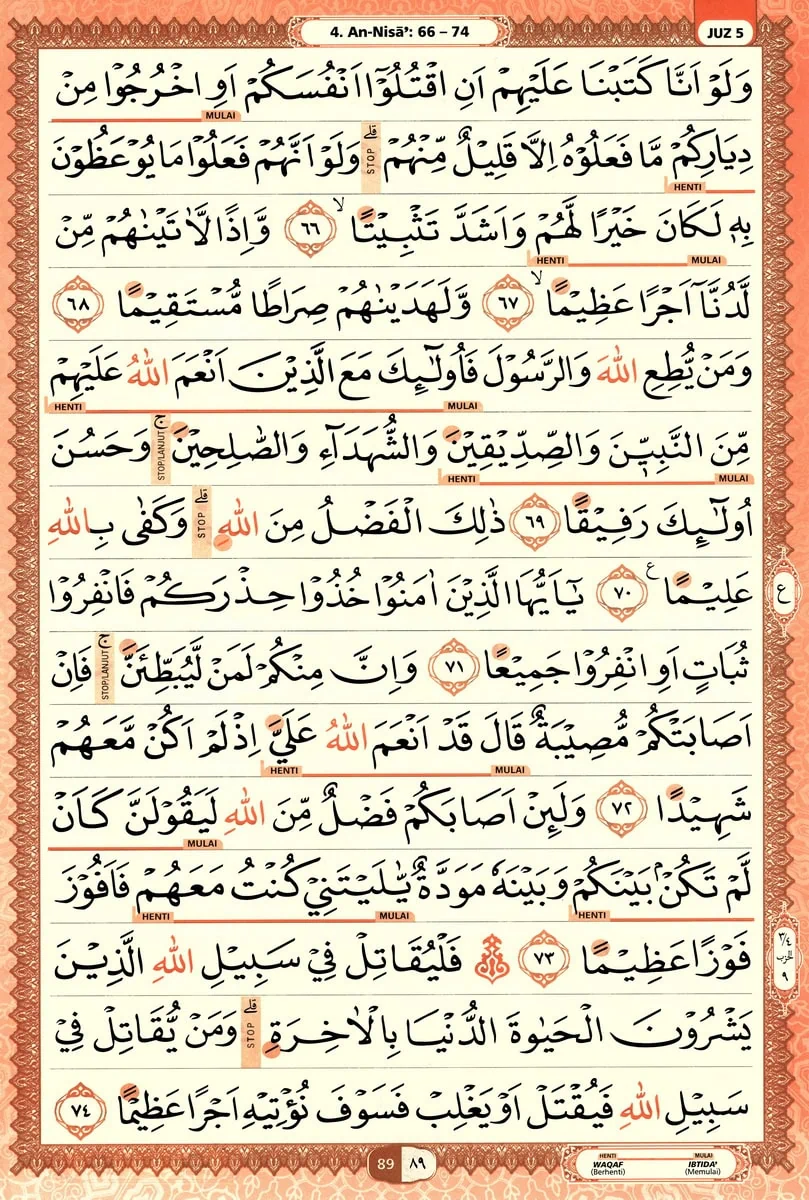 4. An-Nisā': 66 – 74
JUZ 5
وَلَوْ اَنَّا كَتَبْنَا عَلَيْهِمْ اَنِ اقْتُلُوْٓا اَنْفُسَكُمْ اَوِ اخْرُجُوْا مِنْ
MULAI
دِيَارِكُمْ مَّا فَعَلُوْهُ اِلَّا قَلِيْلٌ مِّنْهُمْ ۗ وَلَوْ اَنَّهُمْ فَعَلُوْا مَا يُوْعَظُوْنَ
STOP
HENTI
بِهٖ لَكَانَ خَيْرًا لَّهُمْ وَاَشَدَّ تَثْبِيْتًا ۙ ٦٦ وَّاِذًا لَّاٰتَيْنٰهُمْ مِّنْ
MULAI HENTI
لَّدُنَّآ اَجْرًا عَظِيْمًا ۙ ٦٧ وَّلَهَدَيْنٰهُمْ صِرَاطًا مُّسْتَقِيْمًا ٦٨
وَمَنْ يُّطِعِ اللّٰهَ وَالرَّسُوْلَ فَاُولٰۤىِٕكَ مَعَ الَّذِيْنَ اَنْعَمَ اللّٰهُ عَلَيْهِمْ
MULAI HENTI
مِّنَ النَّبِيّٖنَ وَالصِّدِّيْقِيْنَ وَالشُّهَدَاۤءِ وَالصّٰلِحِيْنَ ۚ وَحَسُنَ
STOP/LANJUT
MULAI HENTI
اُولٰۤىِٕكَ رَفِيْقًا ٦٩ ذٰلِكَ الْفَضْلُ مِنَ اللّٰهِ ۗ وَكَفٰى بِاللّٰهِ
STOP
عَلِيْمًا ࣖ ٧٠ يٰٓاَيُّهَا الَّذِيْنَ اٰمَنُوْا خُذُوْا حِذْرَكُمْ فَانْفِرُوْا
ع
ثُبَاتٍ اَوِ انْفِرُوْا جَمِيْعًا ٧١ وَاِنَّ مِنْكُمْ لَمَنْ لَّيُبَطِّئَنَّ ۚ فَاِنْ
STOP/LANJUT
اَصَابَتْكُمْ مُّصِيْبَةٌ قَالَ قَدْ اَنْعَمَ اللّٰهُ عَلَيَّ اِذْ لَمْ اَكُنْ مَّعَهُمْ
MULAI HENTI
شَهِيْدًا ٧٢ وَلَىِٕنْ اَصَابَكُمْ فَضْلٌ مِّنَ اللّٰهِ لَيَقُوْلَنَّ كَاَنْ
MULAI
لَّمْ تَكُنْۢ بَيْنَكُمْ وَبَيْنَهٗ مَوَدَّةٌ يّٰلَيْتَنِيْ كُنْتُ مَعَهُمْ فَاَفُوْزَ
HENTI MULAI HENTI
فَوْزًا عَظِيْمًا ٧٣ ۞ فَلْيُقَاتِلْ فِيْ سَبِيْلِ اللّٰهِ الَّذِيْنَ
٣/٤ الحزب ٩
يَشْرُوْنَ الْحَيٰوةَ الدُّنْيَا بِالْاٰخِرَةِ ۗ وَمَنْ يُّقَاتِلْ فِيْ
STOP
سَبِيْلِ اللّٰهِ فَيُقْتَلْ اَوْ يَغْلِبْ فَسَوْفَ نُؤْتِيْهِ اَجْرًا عَظِيْمًا ٧٤
89 ٨٩
HENTI MULAI
WAQAF IBTIDA'
(Berhenti) (Memulai)